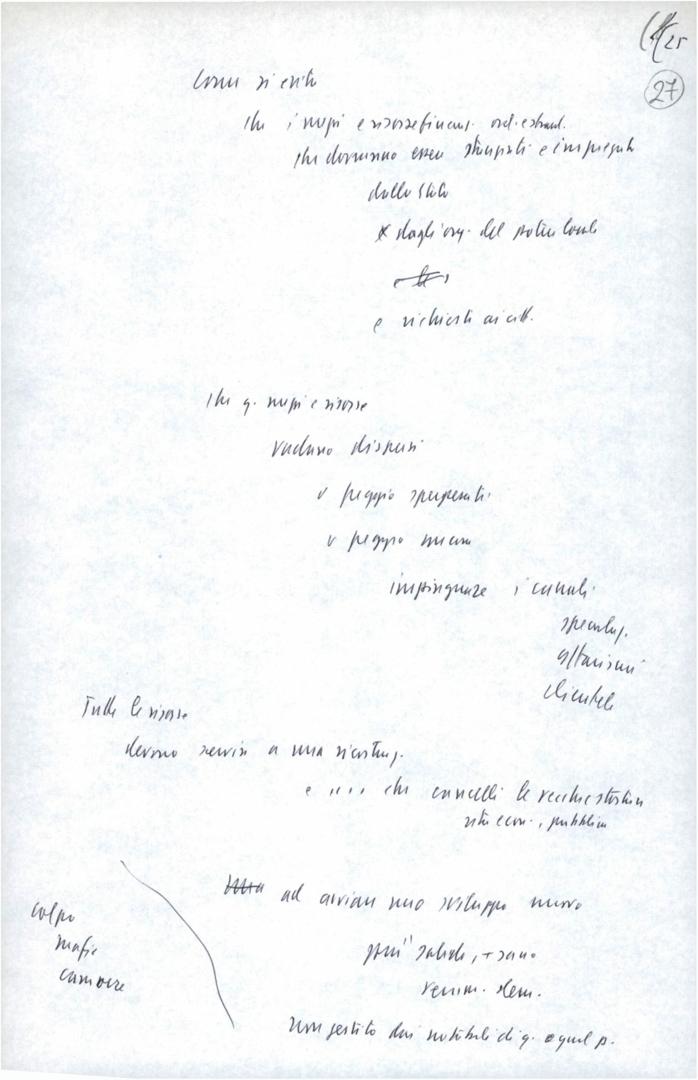 25
27
Come si evita
che i mezzi e risorse finanz. ord. e straord.
che dovranno essere stanziati e impiegati
dallo Stato
dagli org. del potere locale
e richiesti ai citt.
che q. mezzi e risorse
vadano dispersi
o peggio sperperati
o peggio ancora
impinguare i canali
speculaz.
affarismi
clientele
Tutte le risorse
devono servire a una ricostruz.
e che cancelli le vecchie storture
econ., pubblica
ad avviare uno sviluppo nuovo
più solido, + sano
dem.
colpo
mafie
camorre
non gestito dai notabili di q. o quel p.